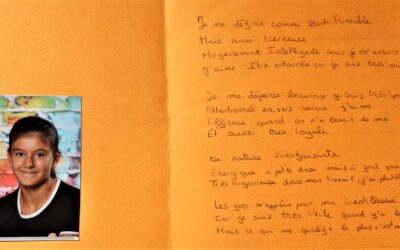 Je me définis comme étant Aimable
Mais aussi Nerveuse
Moyennement Intelligente mais je m'en sors
J'aime Être entourée car je suis très
Je me dépense beaucoup je suis très
Attentionnée envers ceux que j'aime
Efficace quand on a besoin de moi
Et aussi très Loyale
De nature bienfaisante
Énergique à petite dose mais à fond quand
Très Rigoureuse dans mon travail, j'ai plutôt
Les gens m'apprécie pour ma Gentillesse
Car je suis très Utile quand y'a
Mais ce qui me qualifie le plus c'est